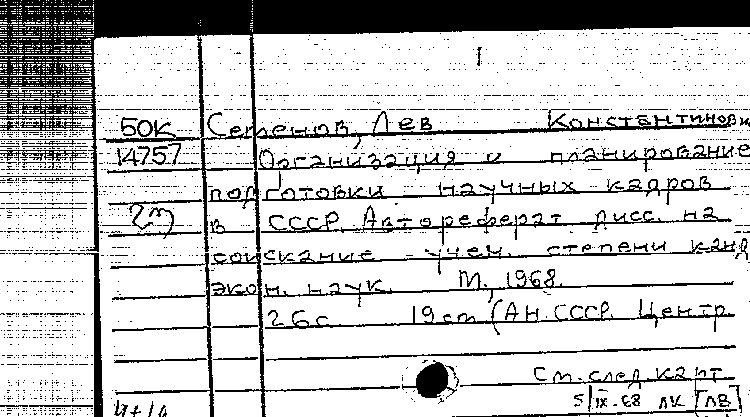 50К Семенов, Лев Константинович
14757 Организация и планирование
подготовки научных кадров
2m в СССР. Автореферат дисс. на
соискание учен. степени канд
экон. наук. М., 1968.
26 с. 19 cm (АН СССР. Центр
См. след. карт
5/IX-68 ЛК [ЛВ]